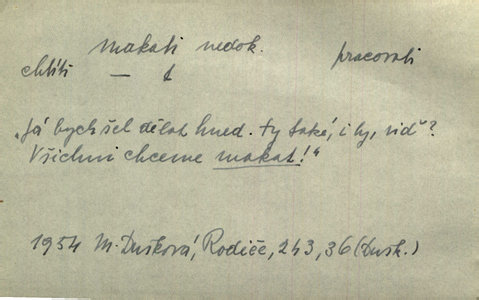 makati nedok. pracovati
chtíti —
„Já bych šel dělat hned. Ty také, i ty, viď?
Všichni chceme makat!“
1954 M. Dušková, Rodiče, 243, 36 (Dušk.)